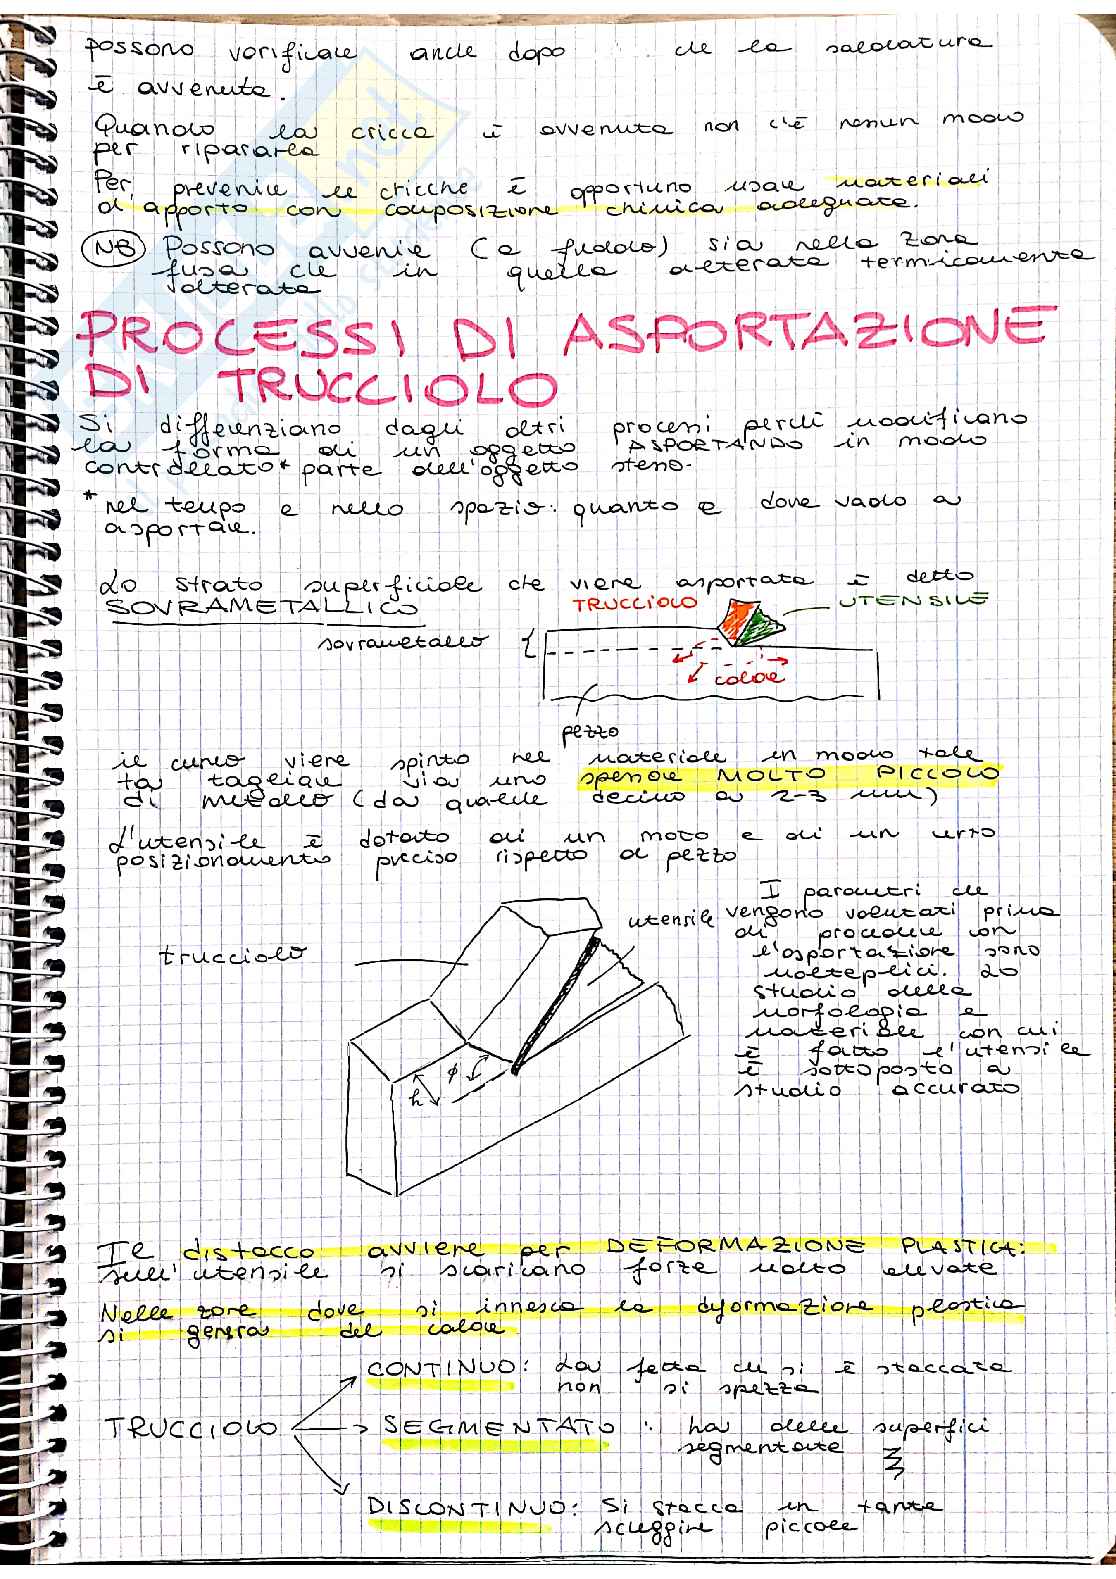 possono verificare anche dopo che la saldatura
è avvenuta.
Quando la cricca è avvenuta non c'è nessun modo
per ripararla
Per prevenire le cricche è opportuno usare materiali
d'apporto con composizione chimica adeguata.
NB Possono avvenire (a freddo) sia nella zona
fusa che in quella alterata termicamente
alterata
PROCESSI DI ASPORTAZIONE
DI TRUCCIOLO
Si differenziano dagli altri processi perché modificano
la forma di un oggetto ASPORTANDO in modo
controllato* parte dell'oggetto stesso.
*nel tempo e nello spazio: quanto e dove vado a
asportare.
Lo strato superficiale che viene asportato è detto
SOVRAMETALLICO
TRUCCIOLO
UTENSILE
sovrametallo
calore
pezzo
il cuneo viene spinto nel materiale in modo tale
da tagliare via uno spessore MOLTO PICCOLO
di metallo (da qualche decimo a 2-3 mm)
L'utensile è dotato di un moto e di un certo
posizionamento preciso rispetto al pezzo
trucciolo
utensile
h
φ
I parametri che
vengono valutati prima
di procedere con
l'asportazione sono
molteplici. Lo
studio della
morfologia e
materiale con cui
è fatto l'utensile
è sottoposto a
studio accurato
Il distacco avviene per DEFORMAZIONE PLASTICA:
sull'utensile si scaricano forze molto elevate
Nelle zone dove si innesca la deformazione plastica
si genera del calore
TRUCCIOLO
CONTINUO: La fetta che si è staccata
non si spezza
SEGMENTATO: ha delle superfici
segmentate
DISCONTINUO: Si stacca in tante
scheggine piccole